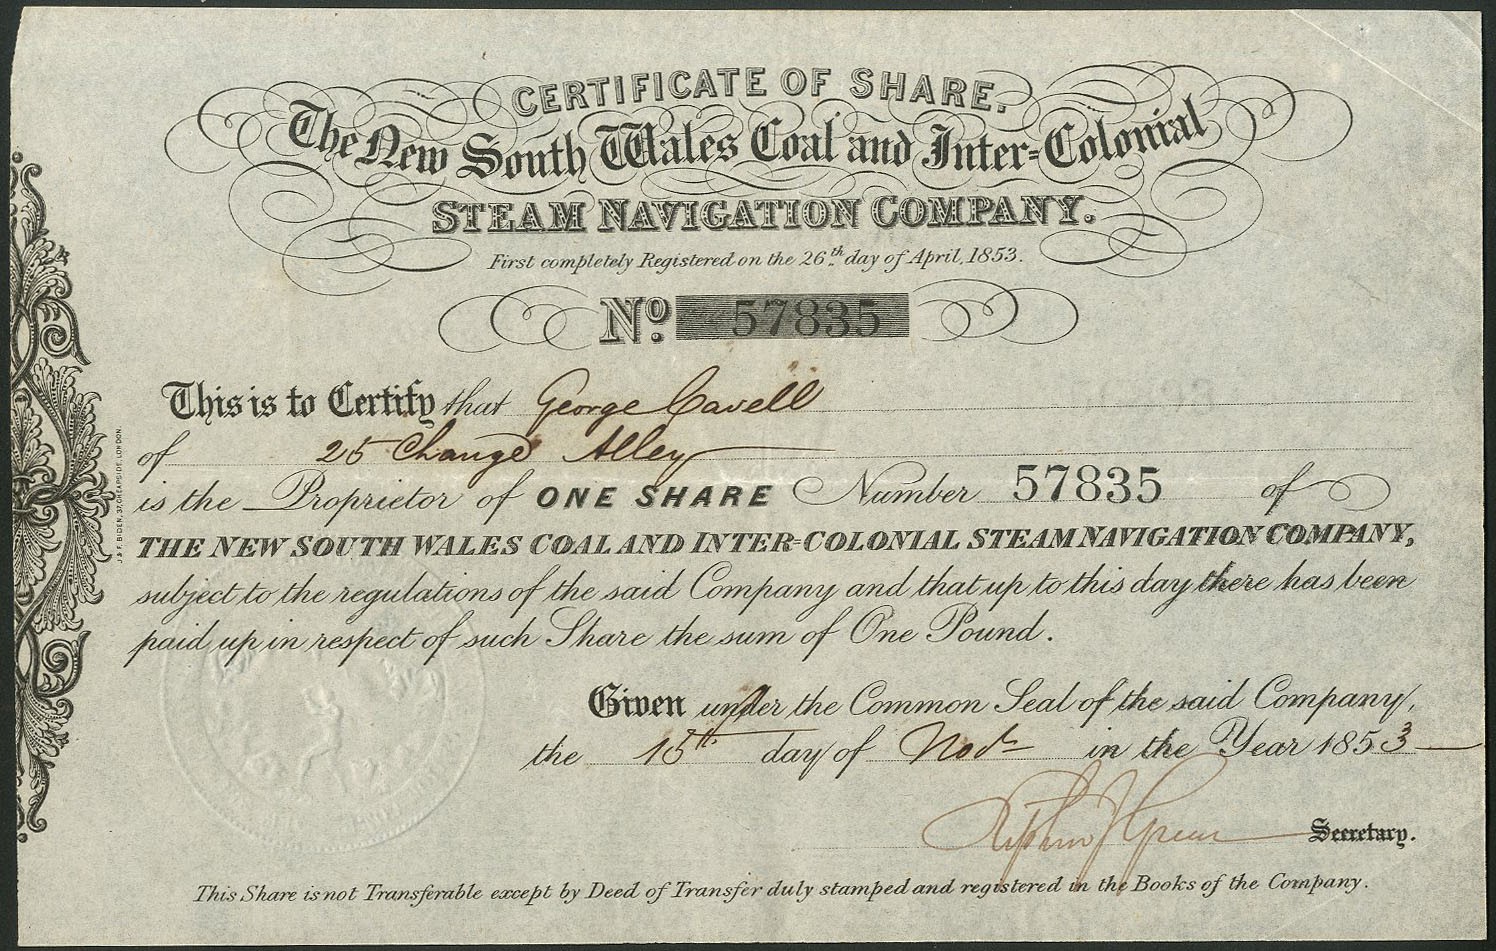 CERTIFICATE OF SHARE.
The New South Wales Coal and Inter-Colonial
STEAM NAVIGATION COMPANY.
First completely Registered on the 26th day of April, 1853.
No. 57835
This is to Certify that George Cavell
of 25 Change Alley
is the Proprietor of ONE SHARE Number 57835 of
THE NEW SOUTH WALES COAL AND INTER-COLONIAL STEAM NAVIGATION COMPANY,
subject to the regulations of the said Company and that up to this day there has been
paid up in respect of such Share the sum of One Pound.
Given under the Common Seal of the said Company,
the 15th day of Novr in the Year 1853
Secretary.
This Share is not Transferable except by Deed of Transfer duly stamped and registered in the Books of the Company.
J & F. BIDEN, 37, CHEAPSIDE, LONDON.